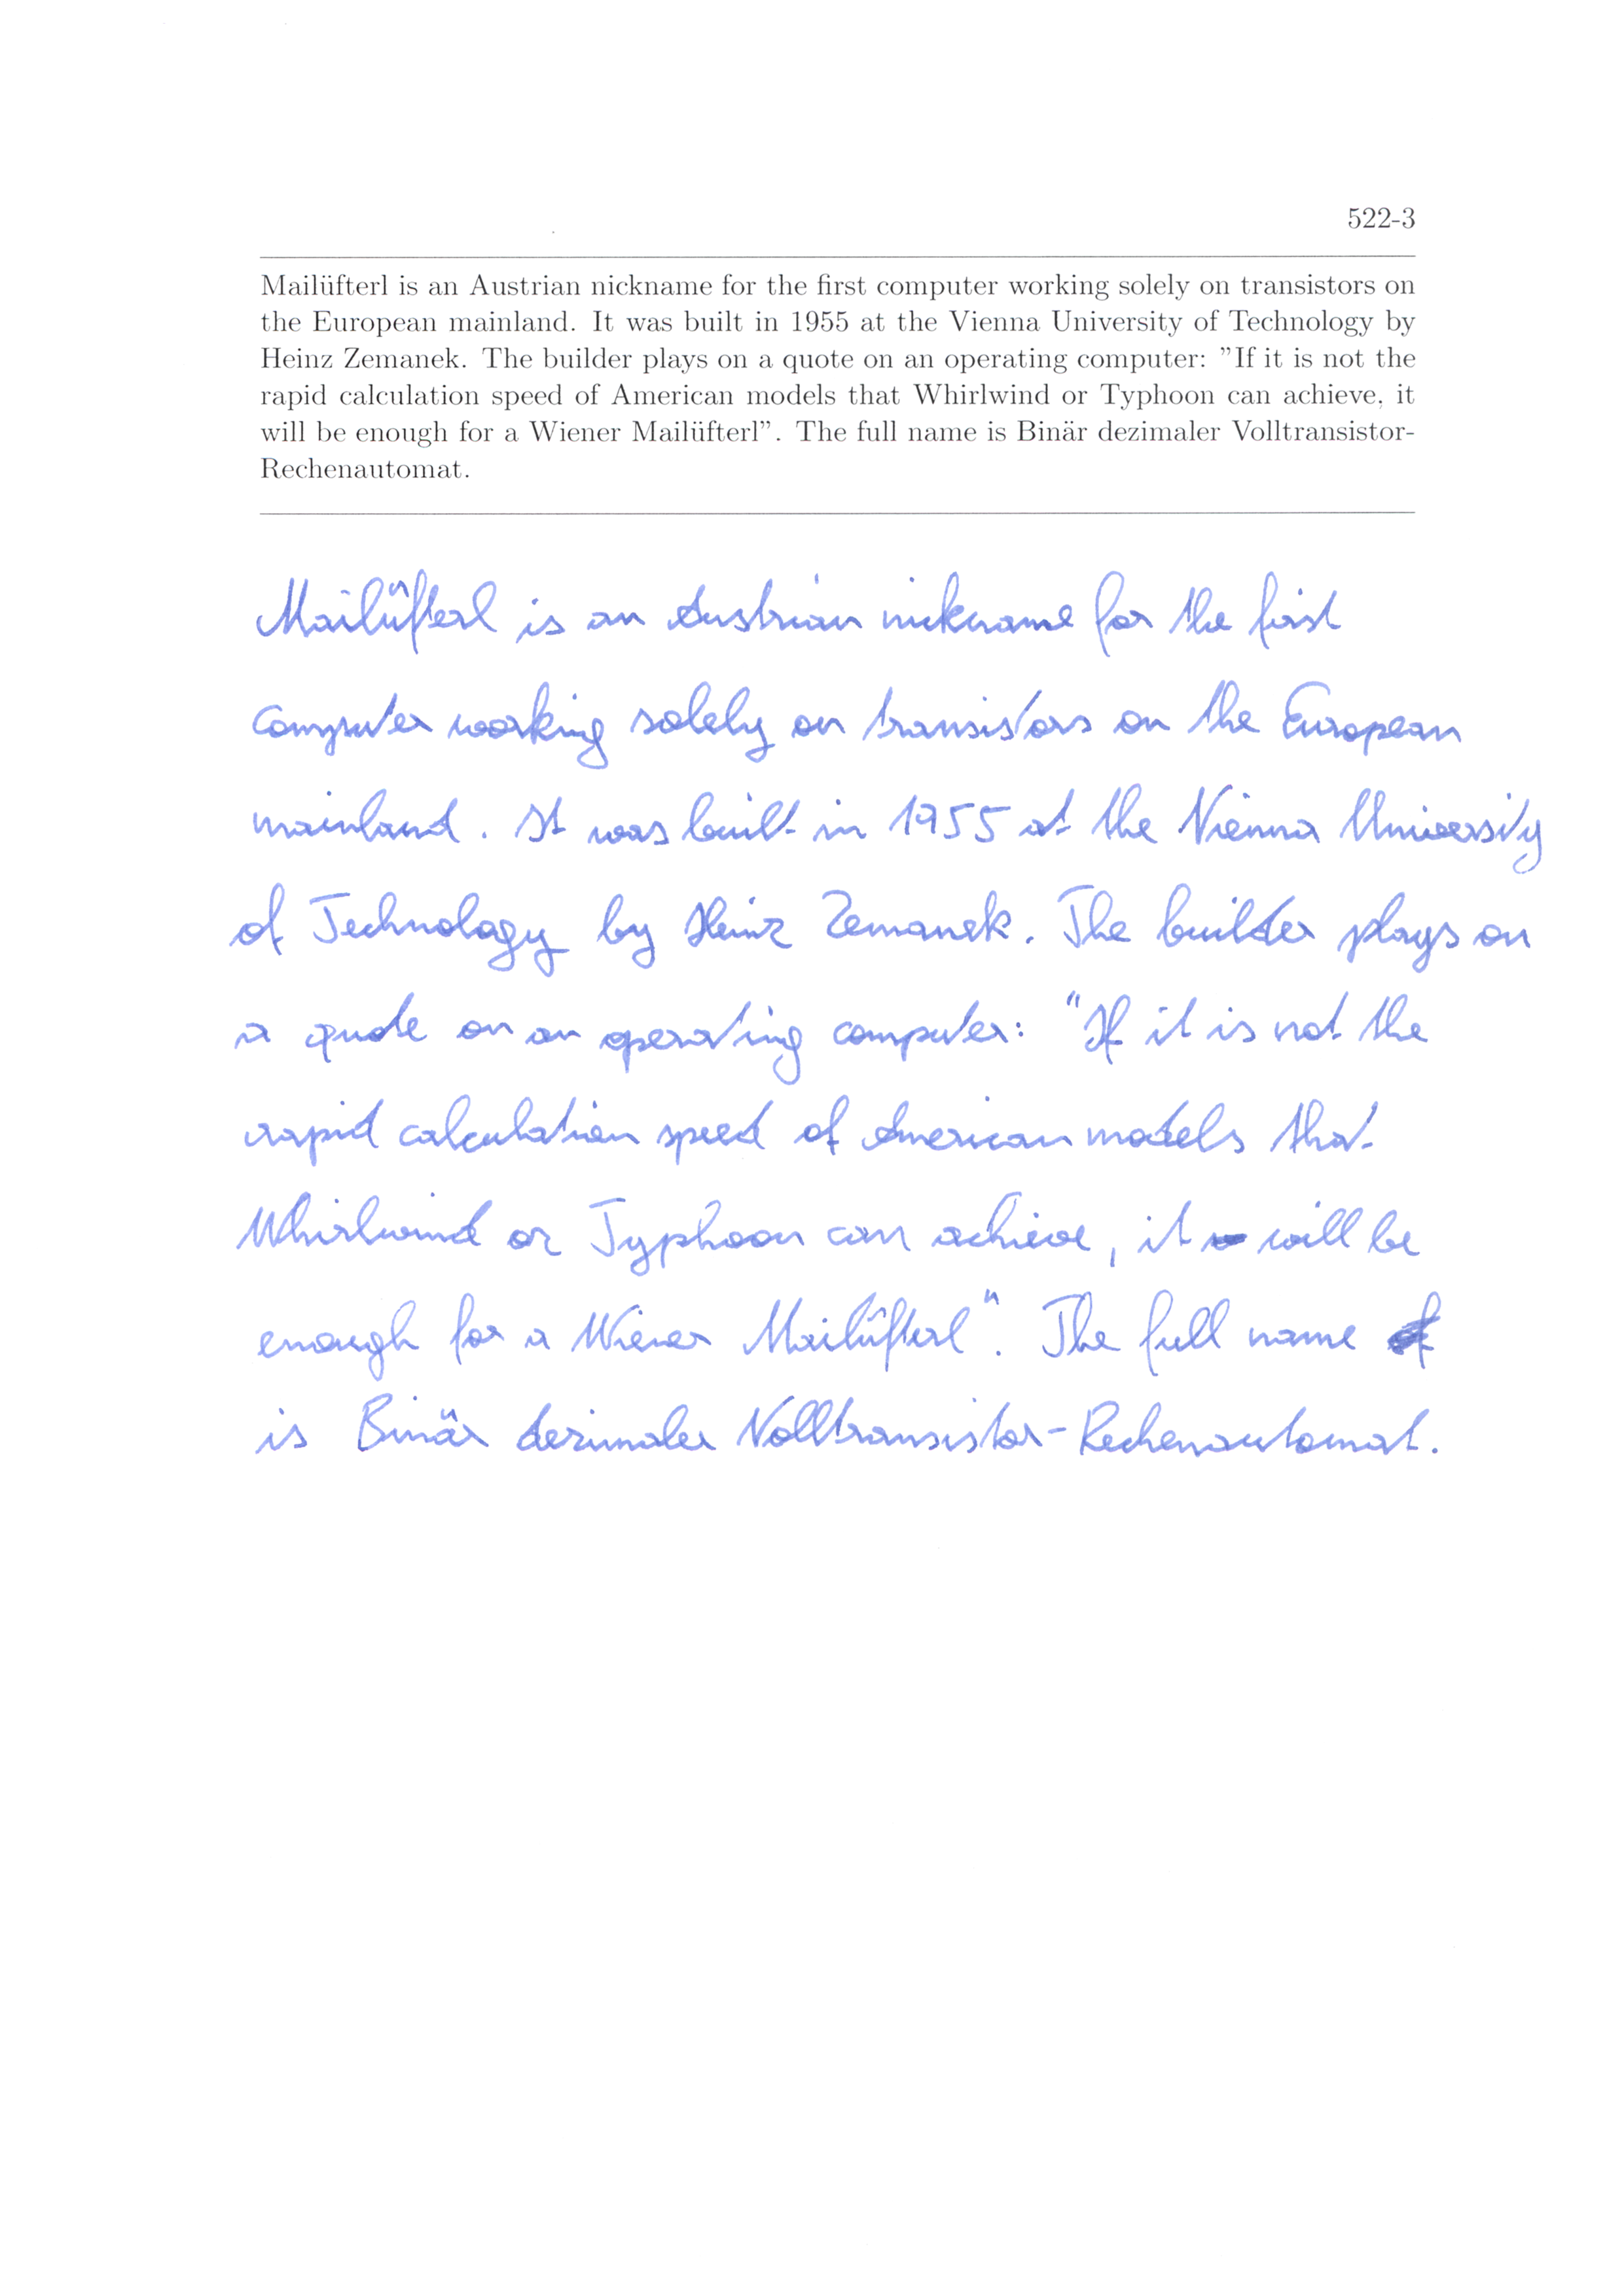 522-3
Mailüfterl is an Austrian nickname for the first computer working solely on transistors on
the European mainland. It was built in 1955 at the Vienna University of Technology by
Heinz Zemanek. The builder plays on a quote on an operating computer: "If it is not the
rapid calculation speed of American models that Whirlwind or Typhoon can achieve, it
will be enough for a Wiener Mailüfterl". The full name is Binär dezimaler Volltransistor-
Rechenautomat.
Mailüfterl is an Austrian nickname for the first
computer working solely on transistors on the European
mainland. It was built in 1955 at the Vienna University
of Technology by Heinz Zemanek. The builder plays on
a quote on an operating computer: "If it is not the
rapid calculation speed of American models that
Whirlwind or Typhoon can achieve, it will be
enough for a Wiener Mailüfterl". The full name
is Binär dezimaler Volltransistor-Rechenautomat.